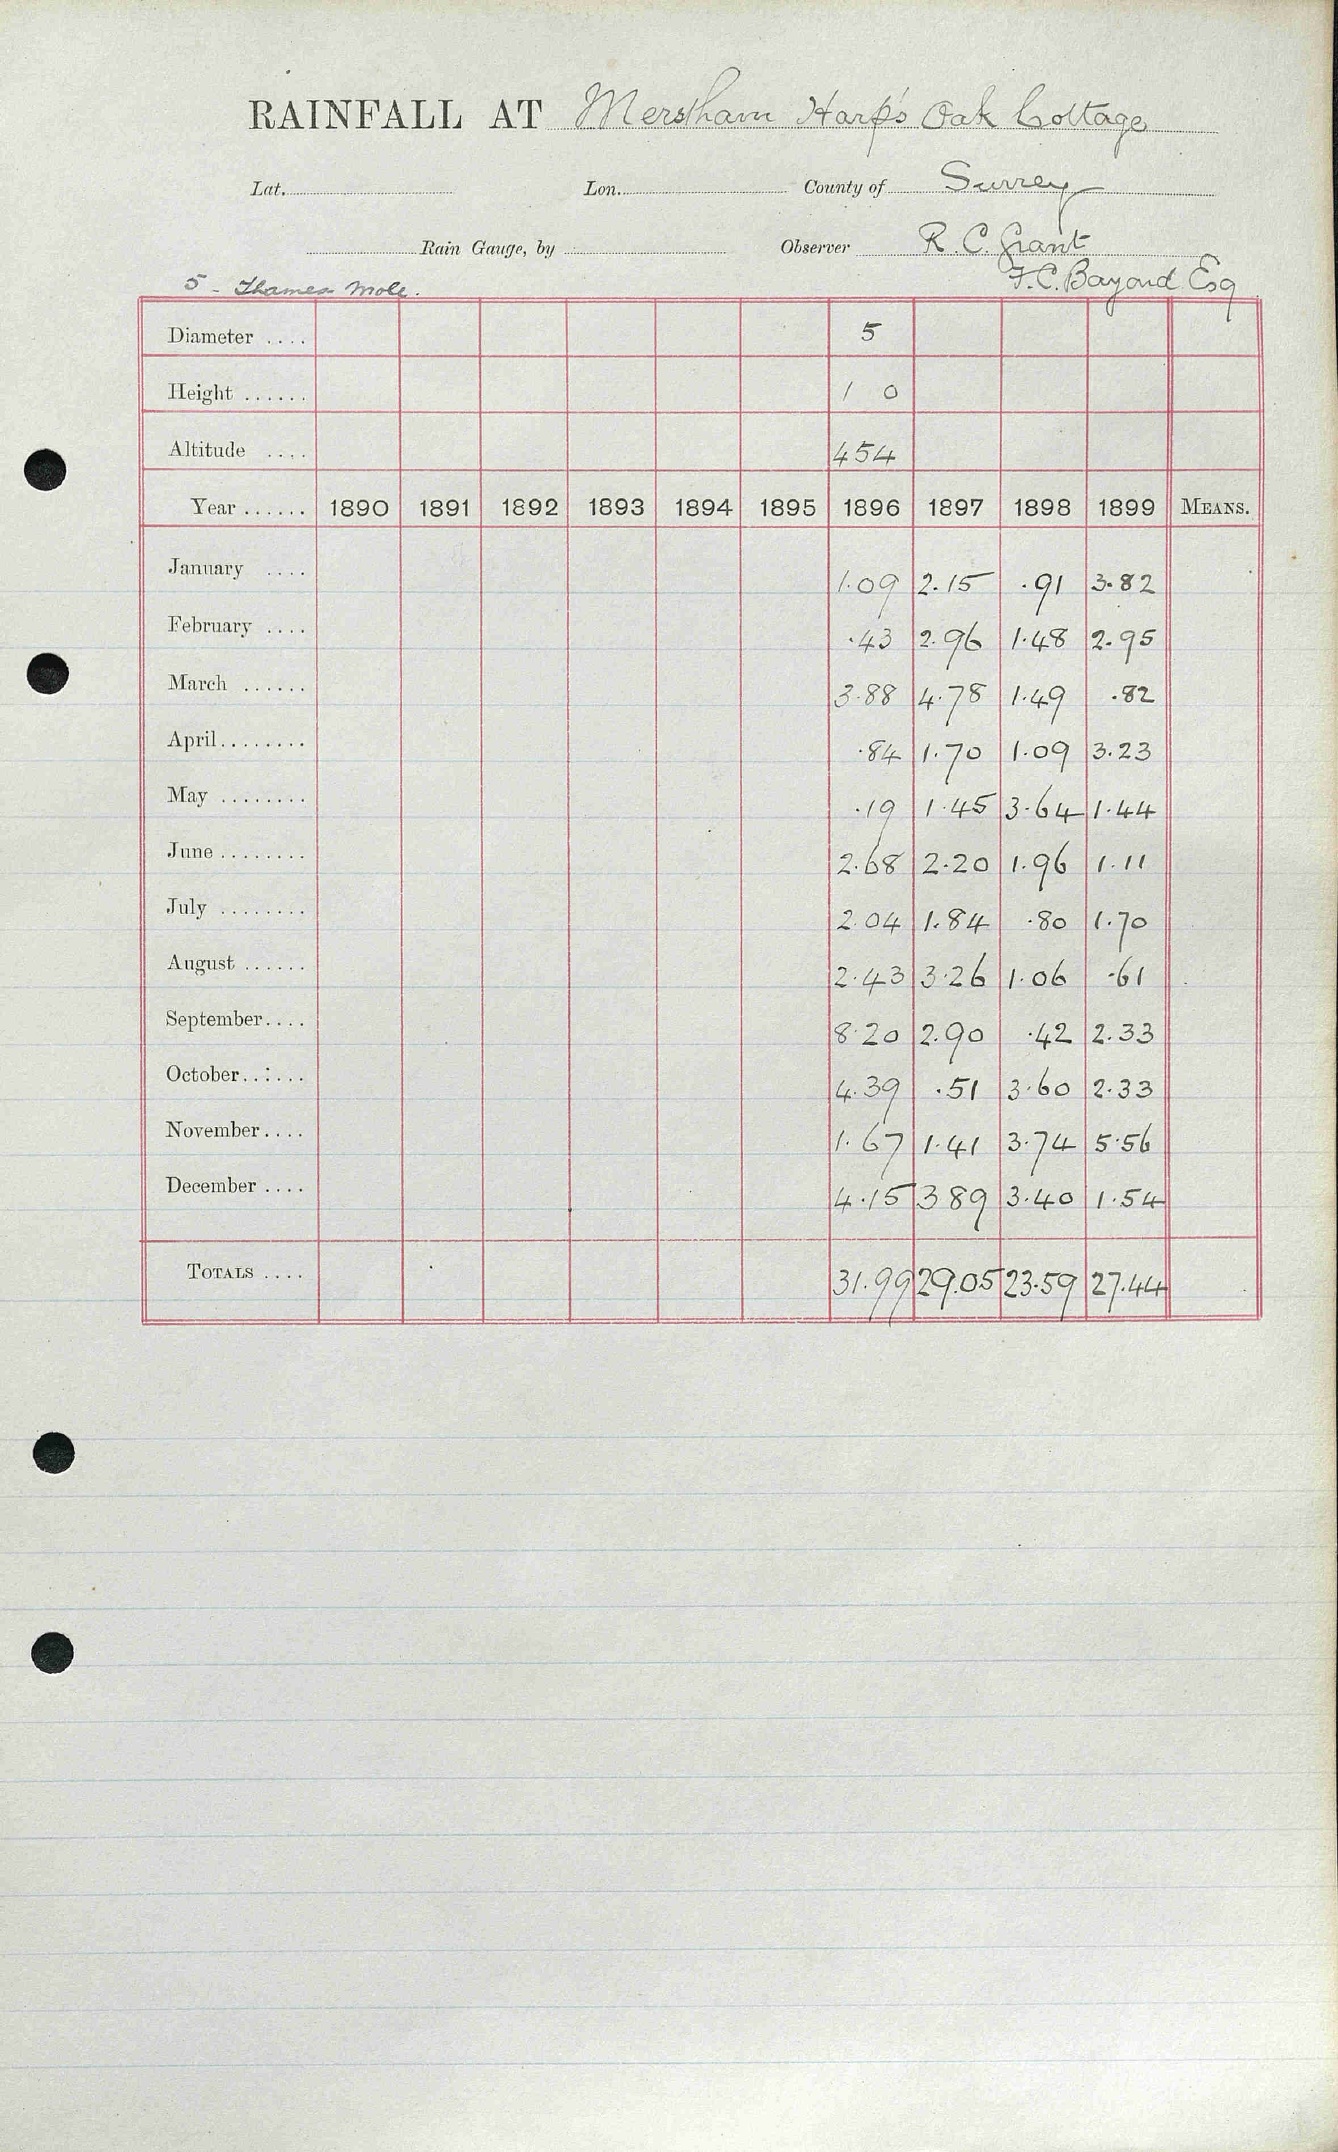 RAINFALL AT Merstham Harp's Oak Cottage
Lat. Lon. County of Surrey
Rain Gauge, by Observer R. C. Grant
5 - Thames Mole. F. C. Bayard Esq
Diameter .... 5
Height ...... 1 0
Altitude .... 454
Year ...... 1890 1891 1892 1893 1894 1895 1896 1897 1898 1899 MEANS.
January .... 1.09 2.15 .91 3.82
February .... .43 2.96 1.48 2.95
March ...... 3.88 4.78 1.49 .82
April........ .84 1.70 1.09 3.23
May ........ .19 1.45 3.64 1.44
June ........ 2.68 2.20 1.96 1.11
July ........ 2.04 1.84 .80 1.70
August ...... 2.43 3.26 1.06 .61
September.... 8.20 2.90 .42 2.33
October...... 4.39 .51 3.60 2.33
November.... 1.67 1.41 3.74 5.56
December .... 4.15 3 89 3.40 1.54
TOTALS .... 31.99 29.05 23.59 27.44